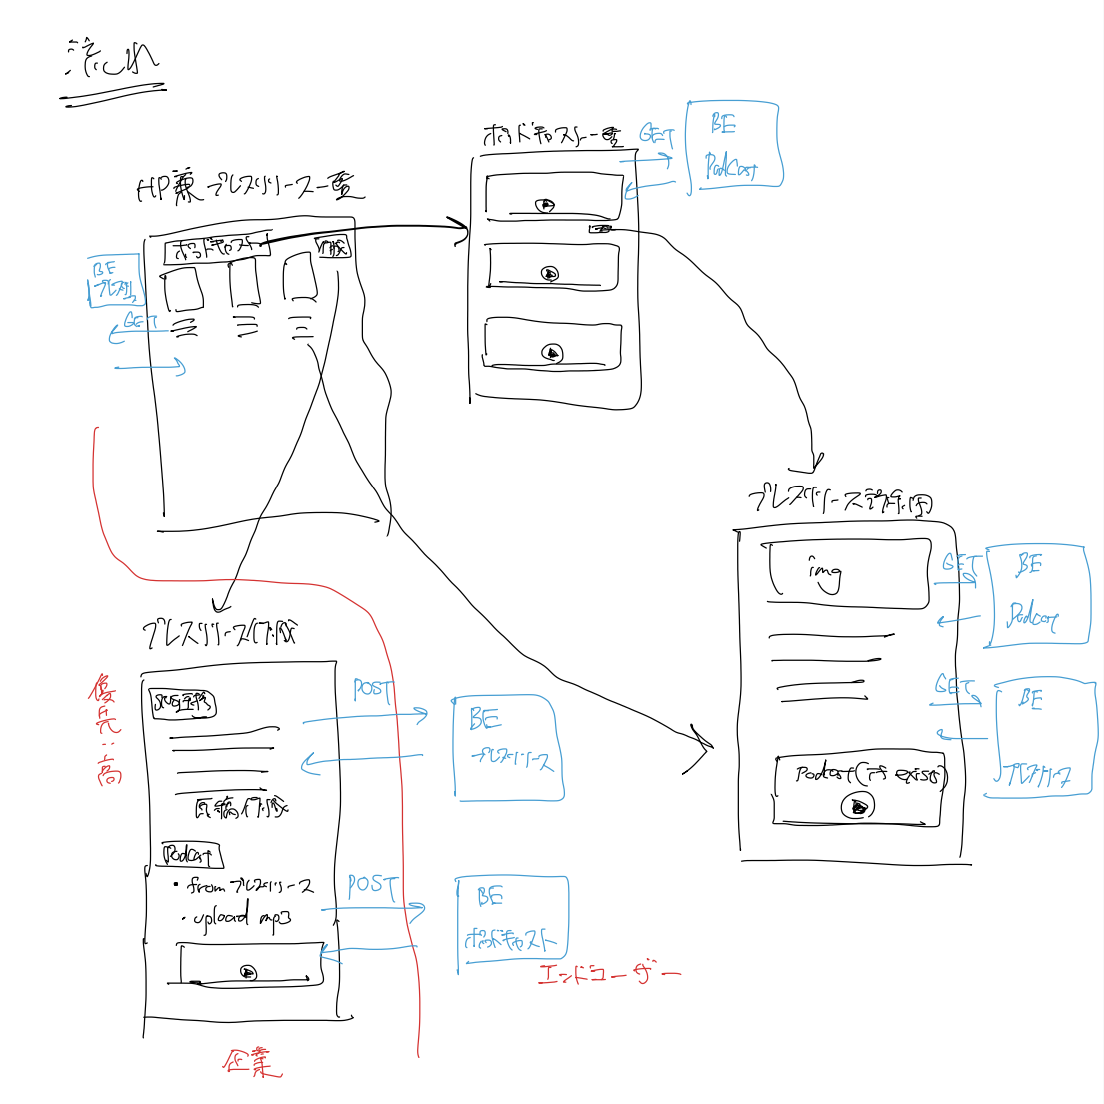 流れ
HP兼プレスリリース一覧
ポッドキャスト
作成
BE
プレスリ
GET
ポッドキャスト一覧
GET
BE
Podcast
プレスリリース詳細
img
GET
BE
Podcast
GET
BE
プレスリリース
Podcast (if exists)
プレスリリース作成
優先:高
原稿作成
POST
BE
プレスリリース
Podcast
・from プレスリリース
・upload mp3
POST
BE
ポッドキャスト
エンドユーザー
企業